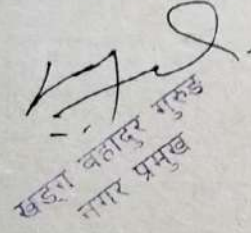 खड्ग बहादुर गुरुङ
नगर प्रमुख